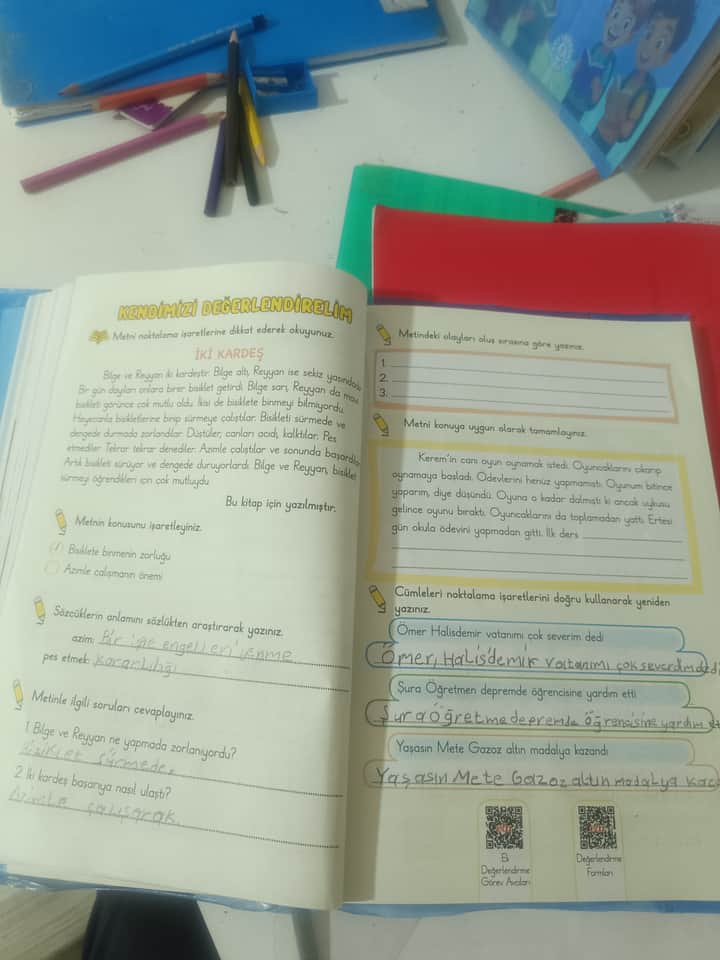 KENDİMİZİ DEĞERLENDİRELİM
Metni noktalama işaretlerine dikkat ederek okuyunuz.
İKİ KARDEŞ
Bilge ve Reyyan iki kardeştir. Bilge altı, Reyyan ise sekiz yaşındadır.
Bir gün dayıları onlara birer bisiklet getirdi. Bilge sarı, Reyyan da mavi
bisikleti görünce çok mutlu oldu. İkisi de bisiklete binmeyi bilmiyordu.
Heyecanla bisikletlerine binip sürmeye çalıştılar. Bisikleti sürmede ve
dengede durmada zorlandılar. Düştüler, canları acıdı, kalktılar. Pes
etmediler. Tekrar tekrar denediler. Azimle çalıştılar ve sonunda başardılar.
Artık bisikleti sürüyor ve dengede duruyorlardı. Bilge ve Reyyan, bisiklet
sürmeyi öğrendikleri için çok mutluydu.
Bu kitap için yazılmıştır.
Metnin konusunu işaretleyiniz.
Bisiklete binmenin zorluğu
Azimle çalışmanın önemi
Sözcüklerin anlamını sözlükten araştırarak yazınız.
azim: Bir işte engelleri yenme
pes etmek: kararlılığı
Metinle ilgili soruları cevaplayınız.
1. Bilge ve Reyyan ne yapmada zorlanıyordu?
Bisiklet sürmede.
2. İki kardeş başarıya nasıl ulaştı?
Azimle çalışarak.
Metindeki olayları oluş sırasına göre yazınız.
1.
2.
3.
Metni konuya uygun olarak tamamlayınız.
Kerem'in canı oyun oynamak istedi. Oyuncaklarını çıkarıp
oynamaya başladı. Ödevlerini henüz yapmamıştı. Oyunum bitince
yaparım, diye düşündü. Oyuna o kadar dalmıştı ki ancak uykusu
gelince oyunu bıraktı. Oyuncaklarını da toplamadan yattı. Ertesi
gün okula ödevini yapmadan gitti. İlk ders
Cümleleri noktalama işaretlerini doğru kullanarak yeniden
yazınız.
Ömer Halisdemir vatanımı çok severim dedi
Ömer, Halis'demir vatanımı çok severdim dedi
Şura Öğretmen depremde öğrencisine yardım etti
Şura Öğretme depremde öğrencisine yardım
Yaşasın Mete Gazoz altın madalya kazandı
Yaşasın Mete Gazoz altın madalya
Ek
Değerlendirme
Görev Avcıları
Değerlendirme
Formları